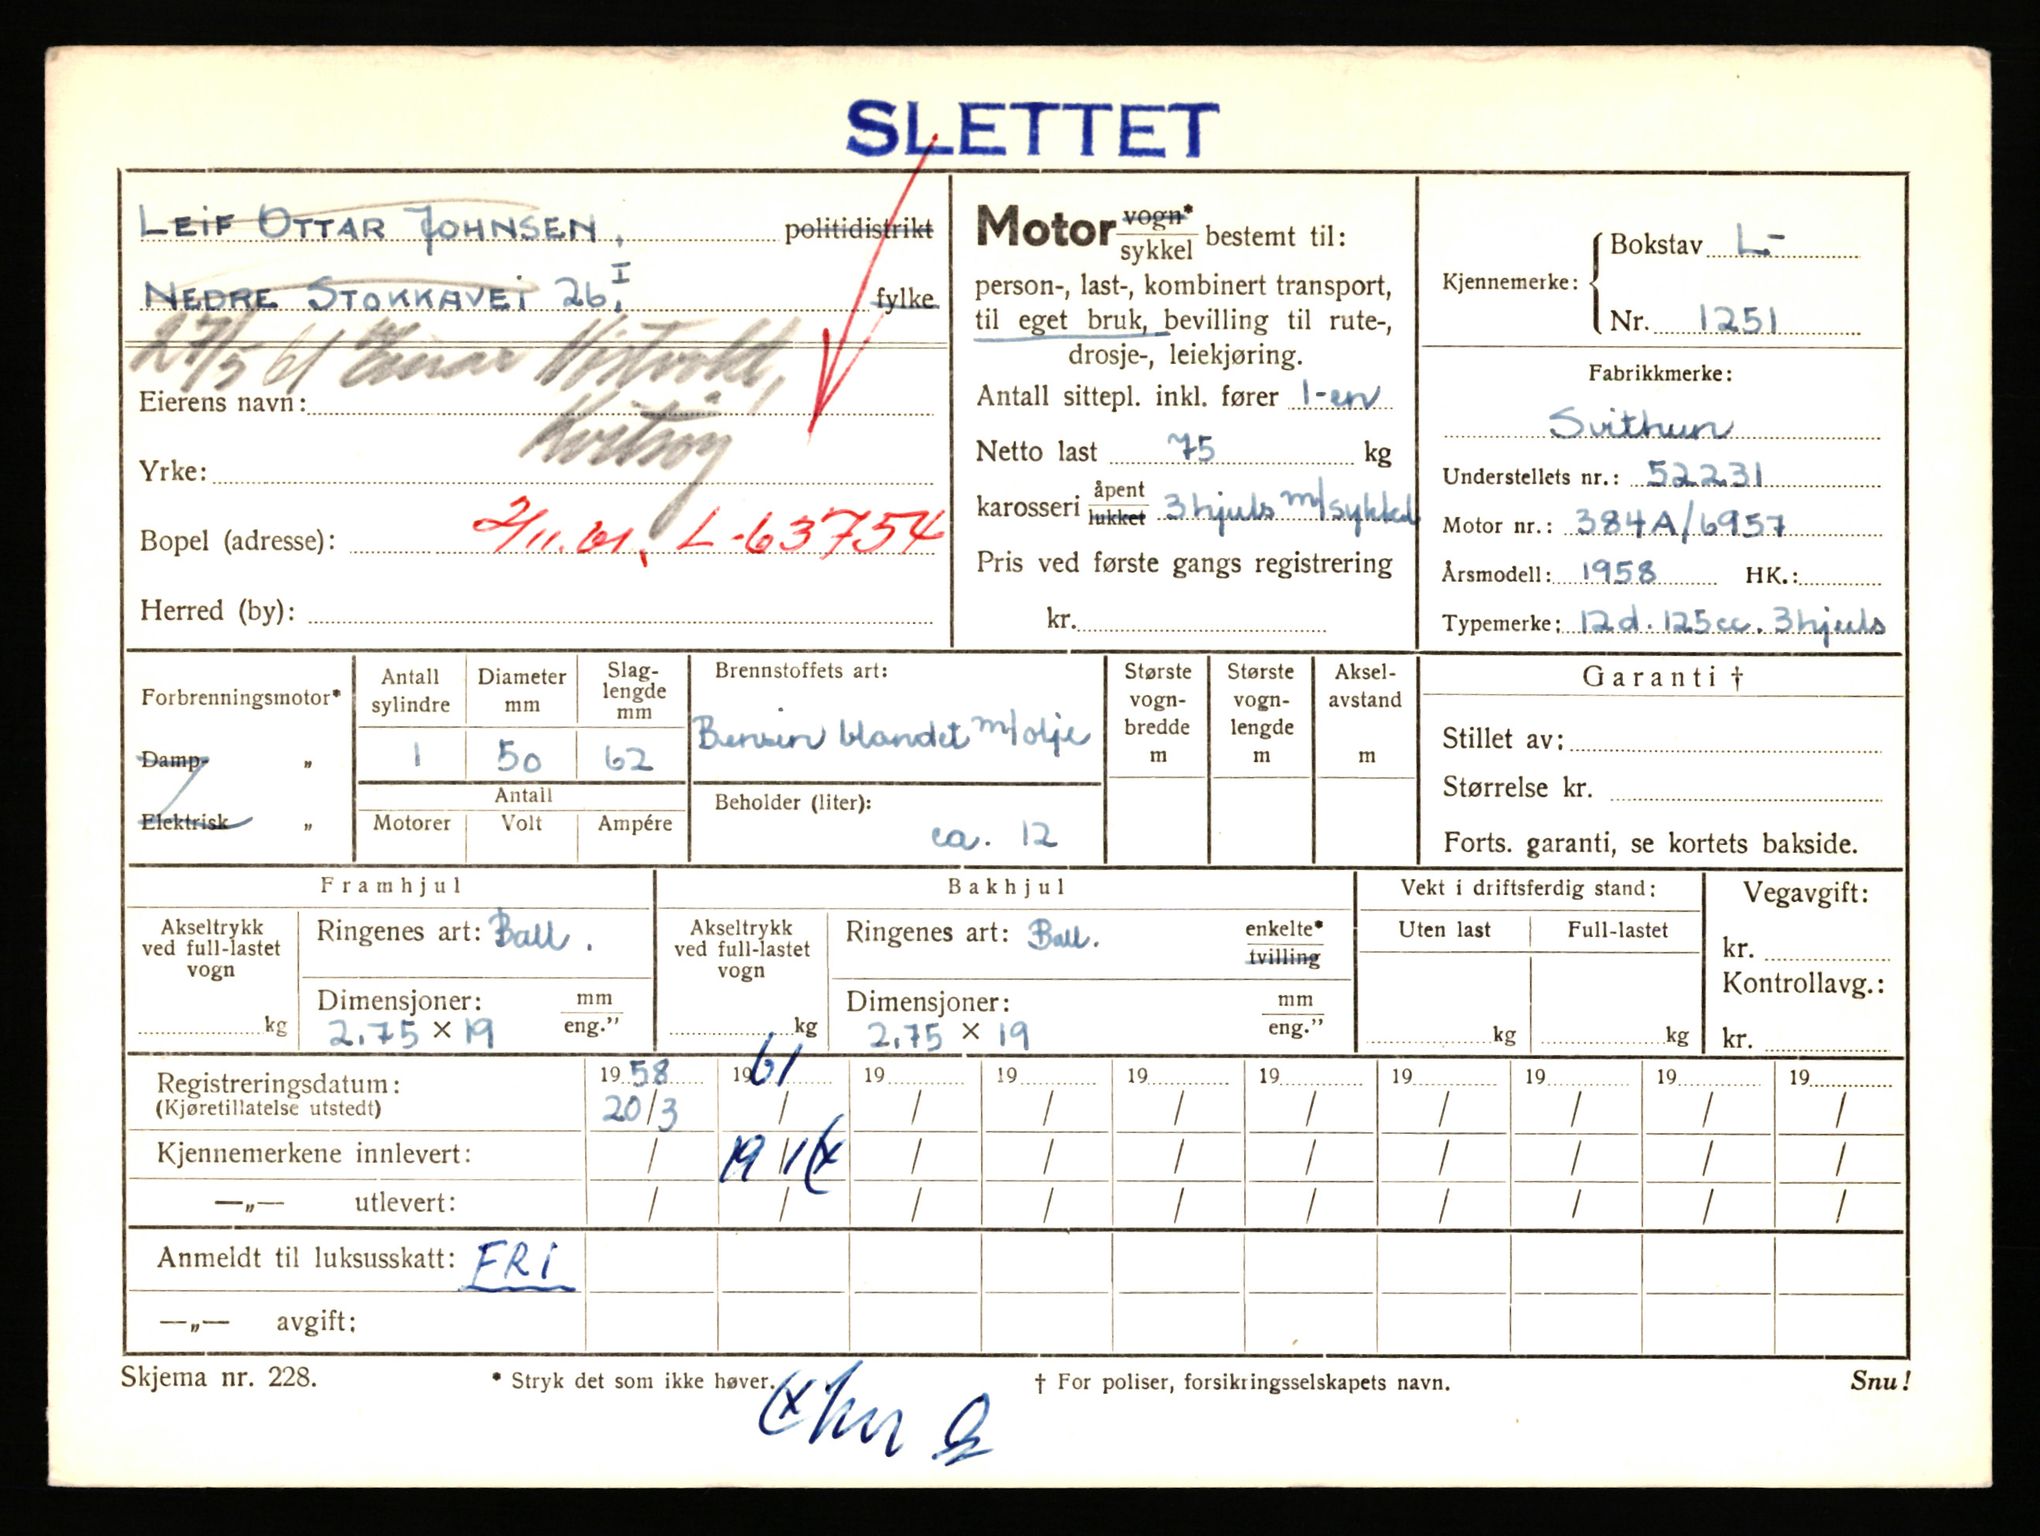 SLETTET
LEIF OTTAR JOHNSEN, politidistrikt
NEDRE STOKKAVEI 26, I fylke
27/5 61 Einar
Eierens navn:
Yrke:
Bopel (adresse): 2/11.61, L-63754
Herred (by):
Motor vogn* sykkel bestemt til:
person-, last-, kombinert transport,
til eget bruk, bevilling til rute-,
drosje-, leiekjøring.
Antall sittepl. inkl. fører 1-en
Netto last 75 kg
karosseri åpent lukket 3 hjuls m/sykkel
Pris ved første gangs registrering
kr.
Kjennemerke: Bokstav L-
Nr. 1251
Fabrikkmerke:
Svithun
Understellets nr.: 52231
Motor nr.: 384A/6957
Årsmodell: 1958 HK.:
Typemerke: 12d. 125cc. 3hjuls
Forbrenningsmotor*
Damp- „
Elektrisk „
Antall sylindre
Diameter mm
Slag-lengde mm
1 50 62
Antall
Motorer Volt Ampére
Brennstoffets art:
Bensin blandet m/olje
Beholder (liter):
ca. 12
Største vogn-bredde m
Største vogn-lengde m
Aksel-avstand m
Garanti †
Stillet av:
Størrelse kr.
Forts. garanti, se kortets bakside.
Framhjul
Akseltrykk ved full-lastet vogn
kg
Ringenes art: Ball.
Dimensjoner: mm eng.”
2,75 × 19
Bakhjul
Akseltrykk ved full-lastet vogn
kg
Ringenes art: Ball. enkelte* tvilling
Dimensjoner: mm eng.”
2,75 × 19
Vekt i driftsferdig stand:
Uten last Full-lastet
kg kg
Vegavgift:
kr.
Kontrollavg.:
kr.
Registreringsdatum: 1958 1961 19 19 19 19 19 19 19 19
(Kjøretillatelse utstedt) 20/3 / / / / / / / / /
Kjennemerkene innlevert: / 19/1 (x / / / / / / / /
—„— utlevert: / / / / / / / / / /
Anmeldt til luksusskatt: FRI
—„— avgift:
Skjema nr. 228.
* Stryk det som ikke høver.
† For poliser, forsikringsselskapets navn.
Snu!